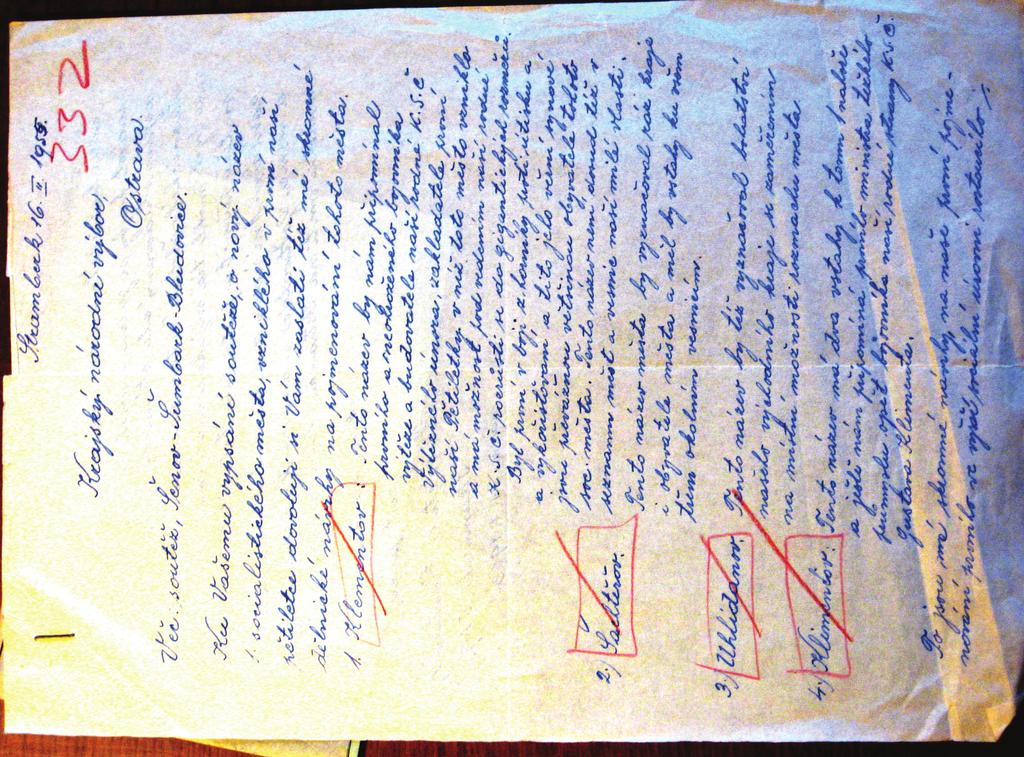 Šumbark 16. II 1955.
332
Krajský národní výbor,
Ostrava.
Věc. soutěž, Šenov-Šumbark-Bludovice.
Ku Vašemu vypsání soutěže, o nový název
I. socialistického města, vzniklého v prvné naší
pětiletce dovoluji si Vám zaslati též mé skromné
dělnické návrhy na pojmenování tohoto města.
1. Klementov. Tento název by nám připomínal
prvního a neohroženého bojovníka
vítěze a budovatele naší rodné K.S.Č
vítězného února, zakladatele první
naší Pětiletky v níž též toto město vzniklo
a má možnost pod vedením naší rodné
K.S.Č. povésti se do gigantických rozměrů.
Byl první v boji z horníky proti útisku a
a vykořisťování a to jeho věrní synové
jsou převážnou většinou obyvatelé tohoto
soc. města. Tento název není, dosud též v
seznamu měst a vesnic naší milé vlasti.
2.) Šaltěrov. Tento název města by vyznačoval ráz kraje
i obyvatele města a měl by vztahy ku všem
těm okolním vesnicím.
3.) Uhlidanov. Tento název by též vyznačoval bohatství
našeho východního kraje se zaměřením
na místní možnosti rozmachu města
4.) Klimentov. Tento název má dva vztahy k tomu nahoře
a ještě nám připomíná prvního ministra těžkého
průmyslu opět bojovníka naší rodné strany K.S.Č.
Gustava Klimenta.
To jsou mé skromné návrhy na naše první pojme-
nování prvního ve vyšší sociální úrovni vstavšího.